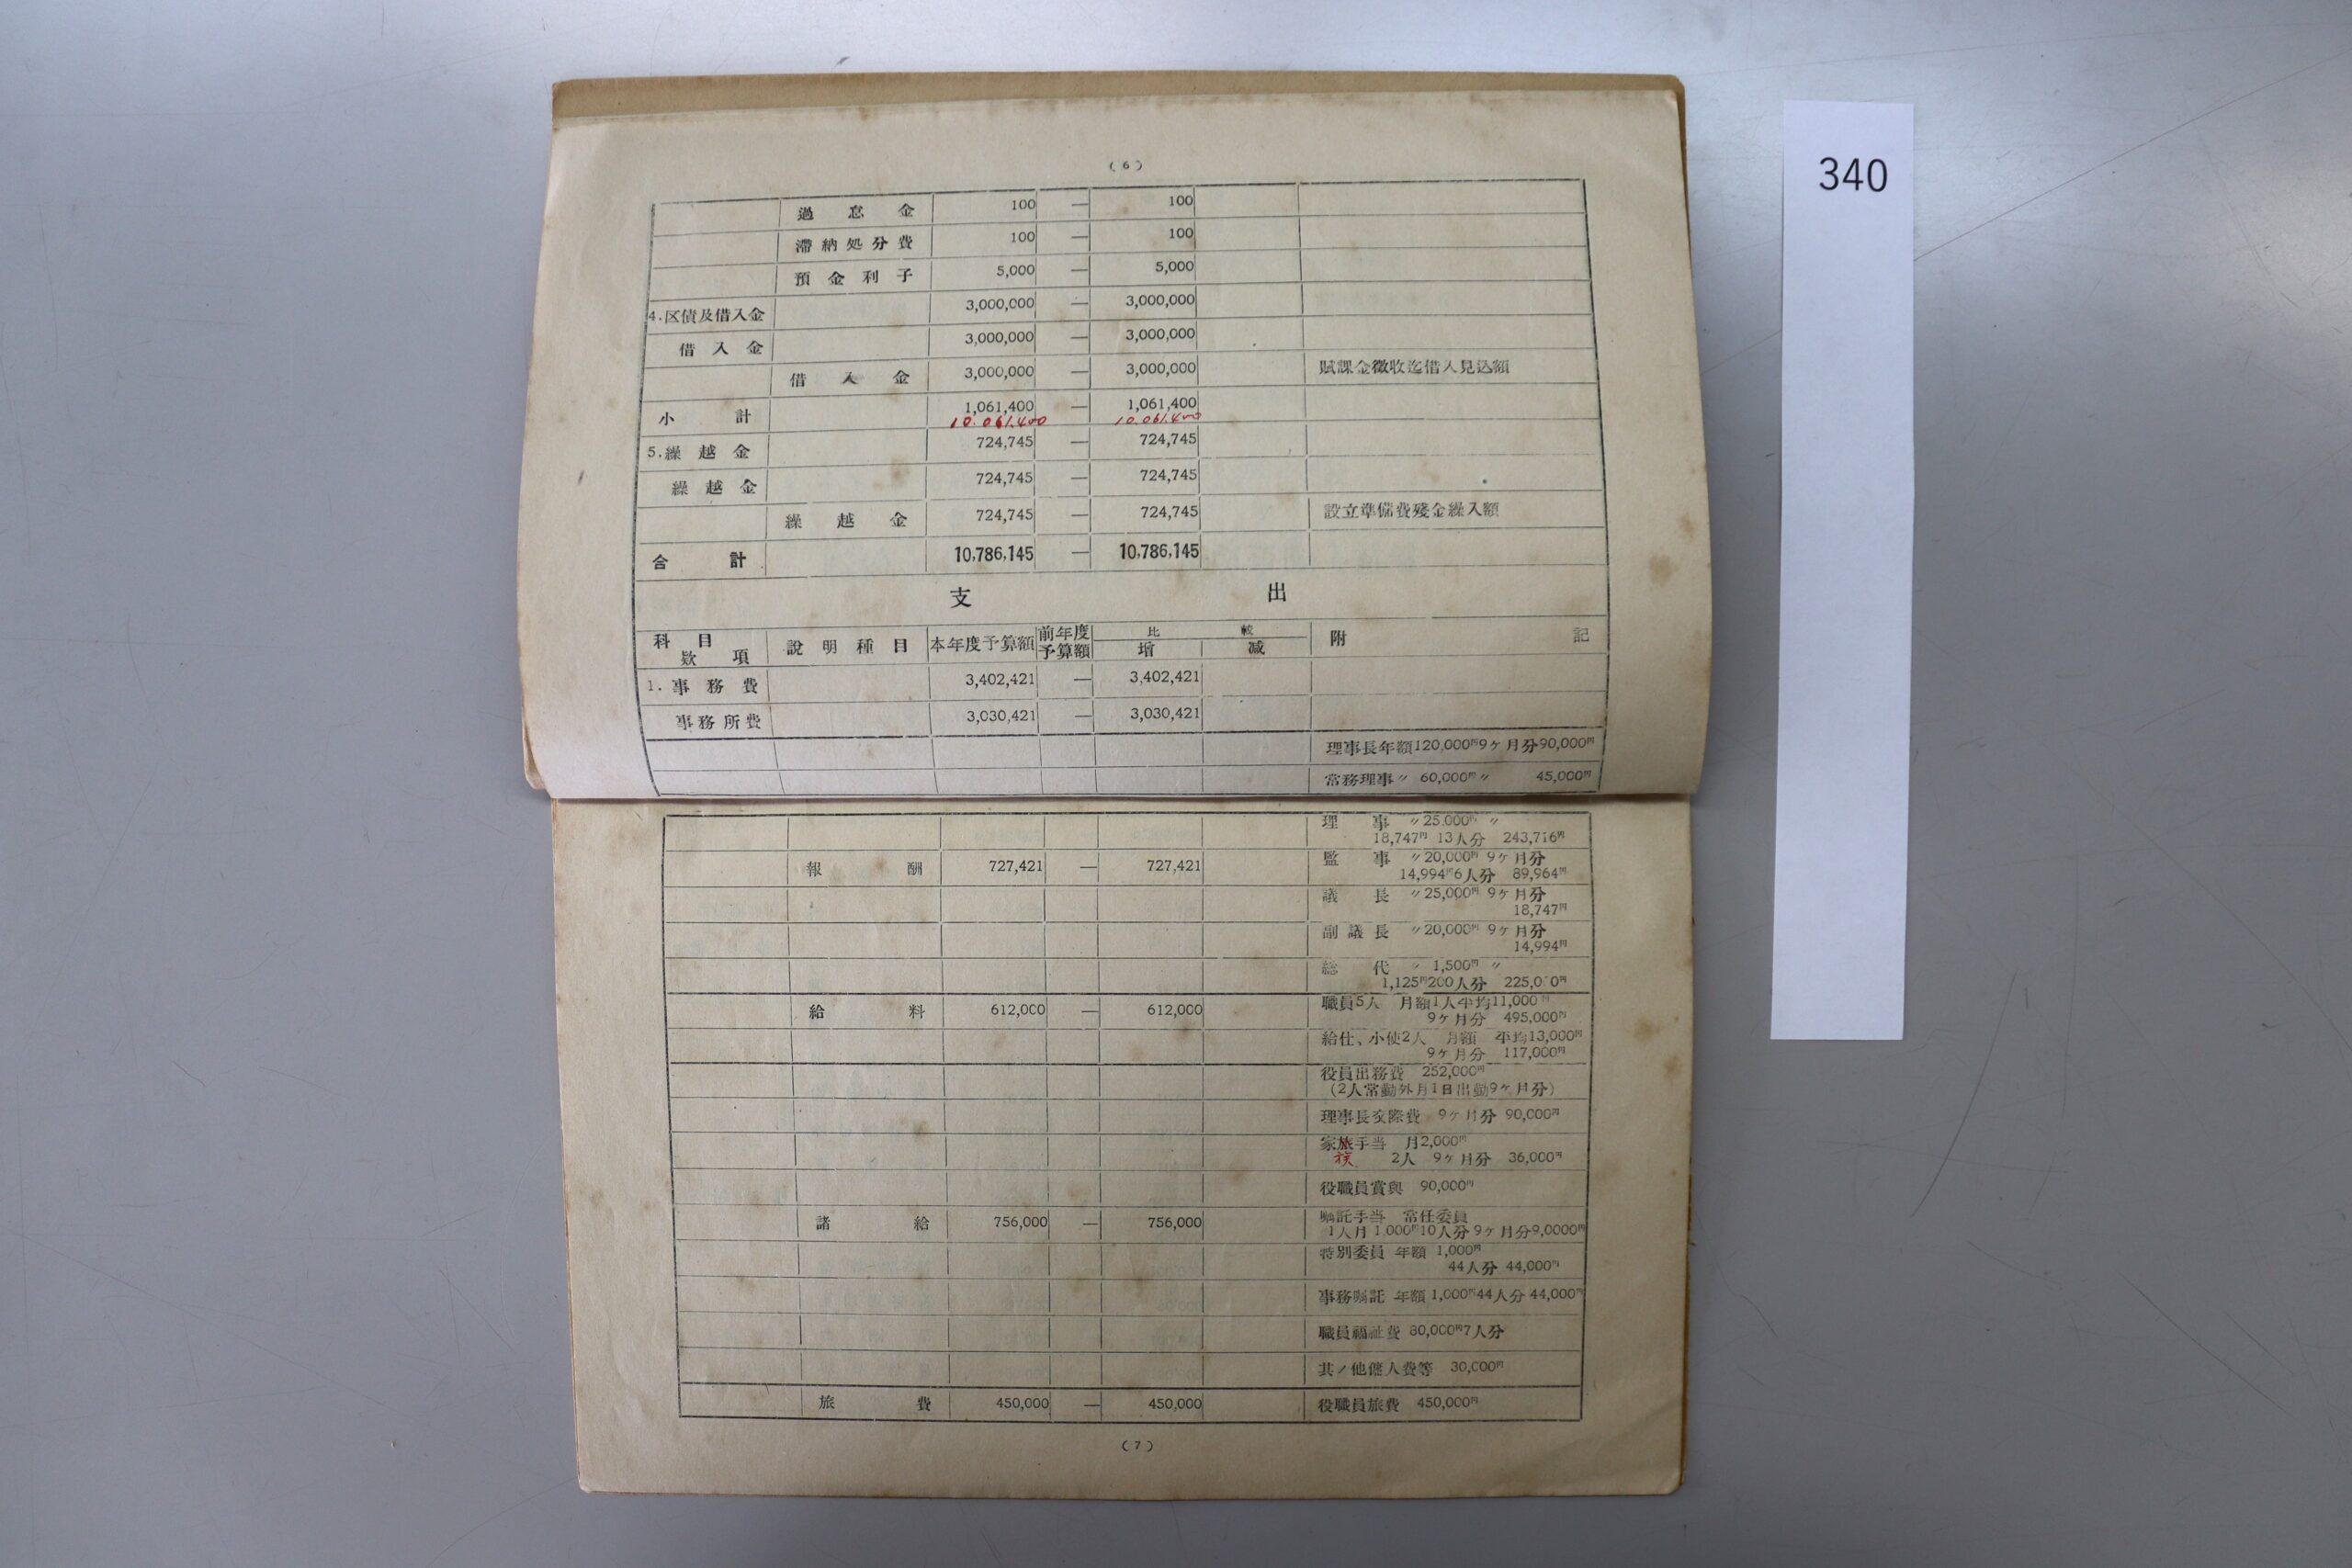 340
(6)
過怠金 100 — 100
滞納処分費 100 — 100
預金利子 5,000 — 5,000
4.区債及借入金 3,000,000 — 3,000,000
借入金 3,000,000 — 3,000,000
借入金 3,000,000 — 3,000,000 賦課金徴收迄借入見込額
小計 1,061,400 — 1,061,400
10.061.400 10.061.400
5.繰越金 724,745 — 724,745
繰越金 724,745 — 724,745
繰越金 724,745 — 724,745 設立準備費残金繰入額
合計 10,786,145 — 10,786,145
支出
科目 前年度 比較
款項 説明種目 本年度予算額 予算額 増 減 附記
1.事務費 3,402,421 — 3,402,421
事務所費 3,030,421 — 3,030,421
理事長年額120,000円9ヶ月分90,000円
常務理事〃 60,000円〃 45,000円
理事 〃25,000円 〃
18,747円 13人分 243,716円
報酬 727,421 — 727,421 監事 〃20,000円 9ヶ月分
14,994円6人分 89,964円
議長 〃25,000円 9ヶ月分
18,747円
副議長 〃20,000円 9ヶ月分
14,994円
総代 〃 1,500円 〃
1,125円200人分 225,000円
給料 612,000 — 612,000 職員5人 月額1人平均11,000円
9ヶ月分 495,000円
給仕、小使2人 月額 平均13,000円
9ヶ月分 117,000円
役員出務費 252,000円
(2人常勤外月1日出勤9ヶ月分)
理事長交際費 9ヶ月分 90,000円
家旅手当 月2,000円
族 2人 9ヶ月分 36,000円
役職員賞與 90,000円
諸給 756,000 — 756,000 嘱託手当 常任委員
1人月1,000円10人分9ヶ月分9,0000円
特別委員 年額 1,000円
44人分 44,000円
事務嘱託 年額1,000円44人分44,000円
職員福祉費 80,000円7人分
其ノ他傭人費等 30,000円
旅費 450,000 — 450,000 役職員旅費 450,000円
(7)